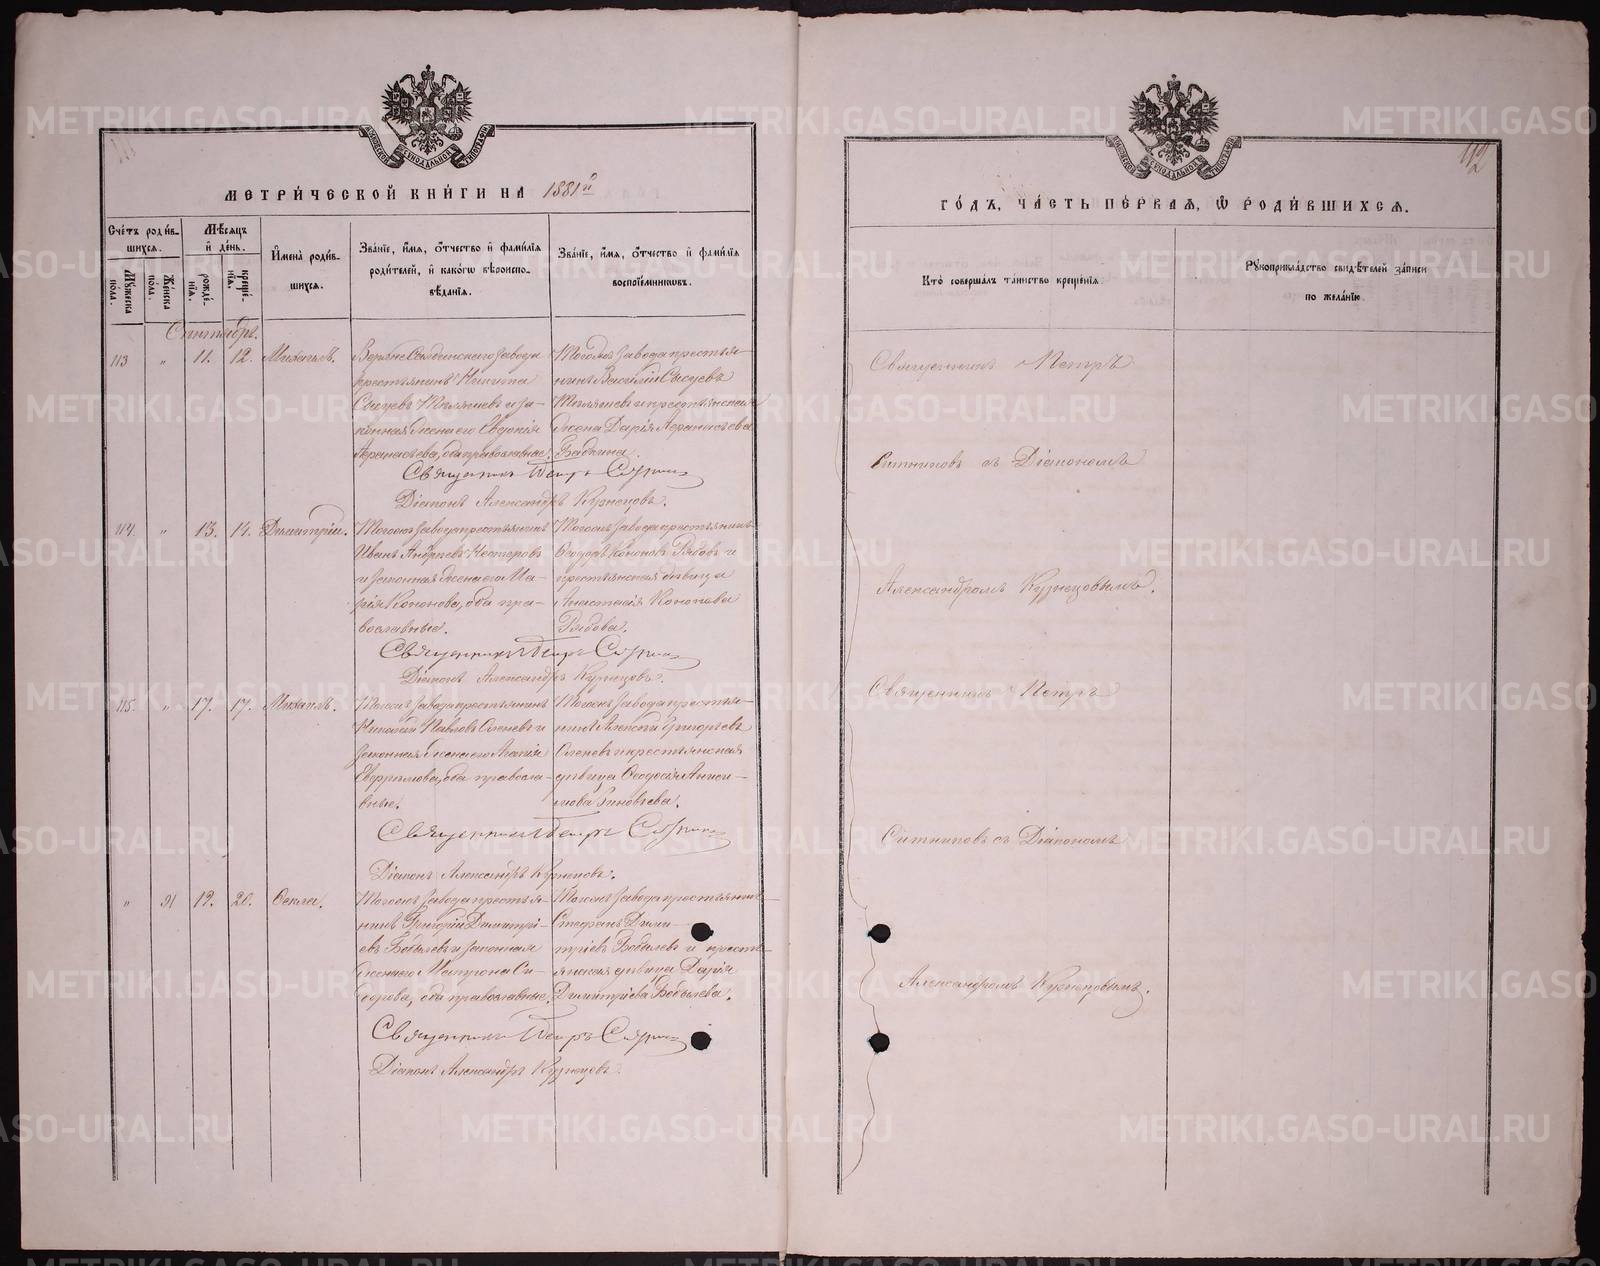 МЕТРИЧЕСКОЙ КНИГИ НА 1881й
Счетъ родив-
шихся.
Мужеска
пола.
Женска
пола.
Мѣсяцъ
и день.
рожде-
нія.
креще-
нія.
Имена родив-
шихся.
Званіе, имя, отчество и фамилія
родителей, и какогѡ вѣроиспо-
вѣданія.
Званіе, имя, отчество и фамилія
воспріемниковъ.
Сентябрь.
113 " 11. 12. Михаилъ.
крестьянинъ Никита
конная жена его Евдокія
Аѳанасьева, оба православные.
Того же завода крестья-
нинъ Василій Сысуевъ
жена Дарія Аѳанасьева
Священникъ Петръ
Діаконъ Александръ Кузнецовъ.
114. " 13. 14. Димитрій.
Того же завода крестьянинъ
Иванъ Андреевъ Нестеровъ
и законная жена его Ма-
рія Кононова, оба пра-
вославные.
Того же завода крестьянинъ
Ѳеодоръ Кононовъ Рябовъ и
крестьянская дѣвица
Анастасія Кононова
Рябова.
Священникъ Петръ
Діаконъ Александръ Кузнецовъ.
115. " 17. 17. Михаилъ.
Того же завода крестьянинъ
Николай Павловъ Оленевъ и
законная жена его Агапія
Евфимова, оба правосла-
вные.
Того же завода крестья-
нинъ Алексій Григорьевъ
Оленевъ и крестьянская
дѣвица Ѳеодосія Аниси-
мова Зиновьева.
Священникъ Петръ
Діаконъ Александръ Кузнецовъ.
" 91 19. 20. Ѳекла.
Того же завода крестья-
нинъ Григорій Димитрі-
евъ Бобылевъ и законная
жена его Матрона Си-
дорова, оба православные.
Того же завода крестьянинъ
Стефанъ Дими-
тріевъ Бобылевъ и кресть-
янская дѣвица Дарія
Димитріева Бобылева.
Священникъ Петръ
Діаконъ Александръ Кузнецовъ.
112
ГОДЪ, ЧАСТЬ ПЕРВАЯ, Ѡ РОДИВШИХСЯ.
Кто совершалъ таинство крещенія.
Рукоприкладство свидѣтелей записи
по желанію.
Священникъ Петръ
Ситниковъ съ Діакономъ
Александромъ Кузнецовымъ.
Священникъ Петръ
Ситниковъ съ Діакономъ
Александромъ Кузнецовымъ.
METRIKI.GASO-URAL.RU